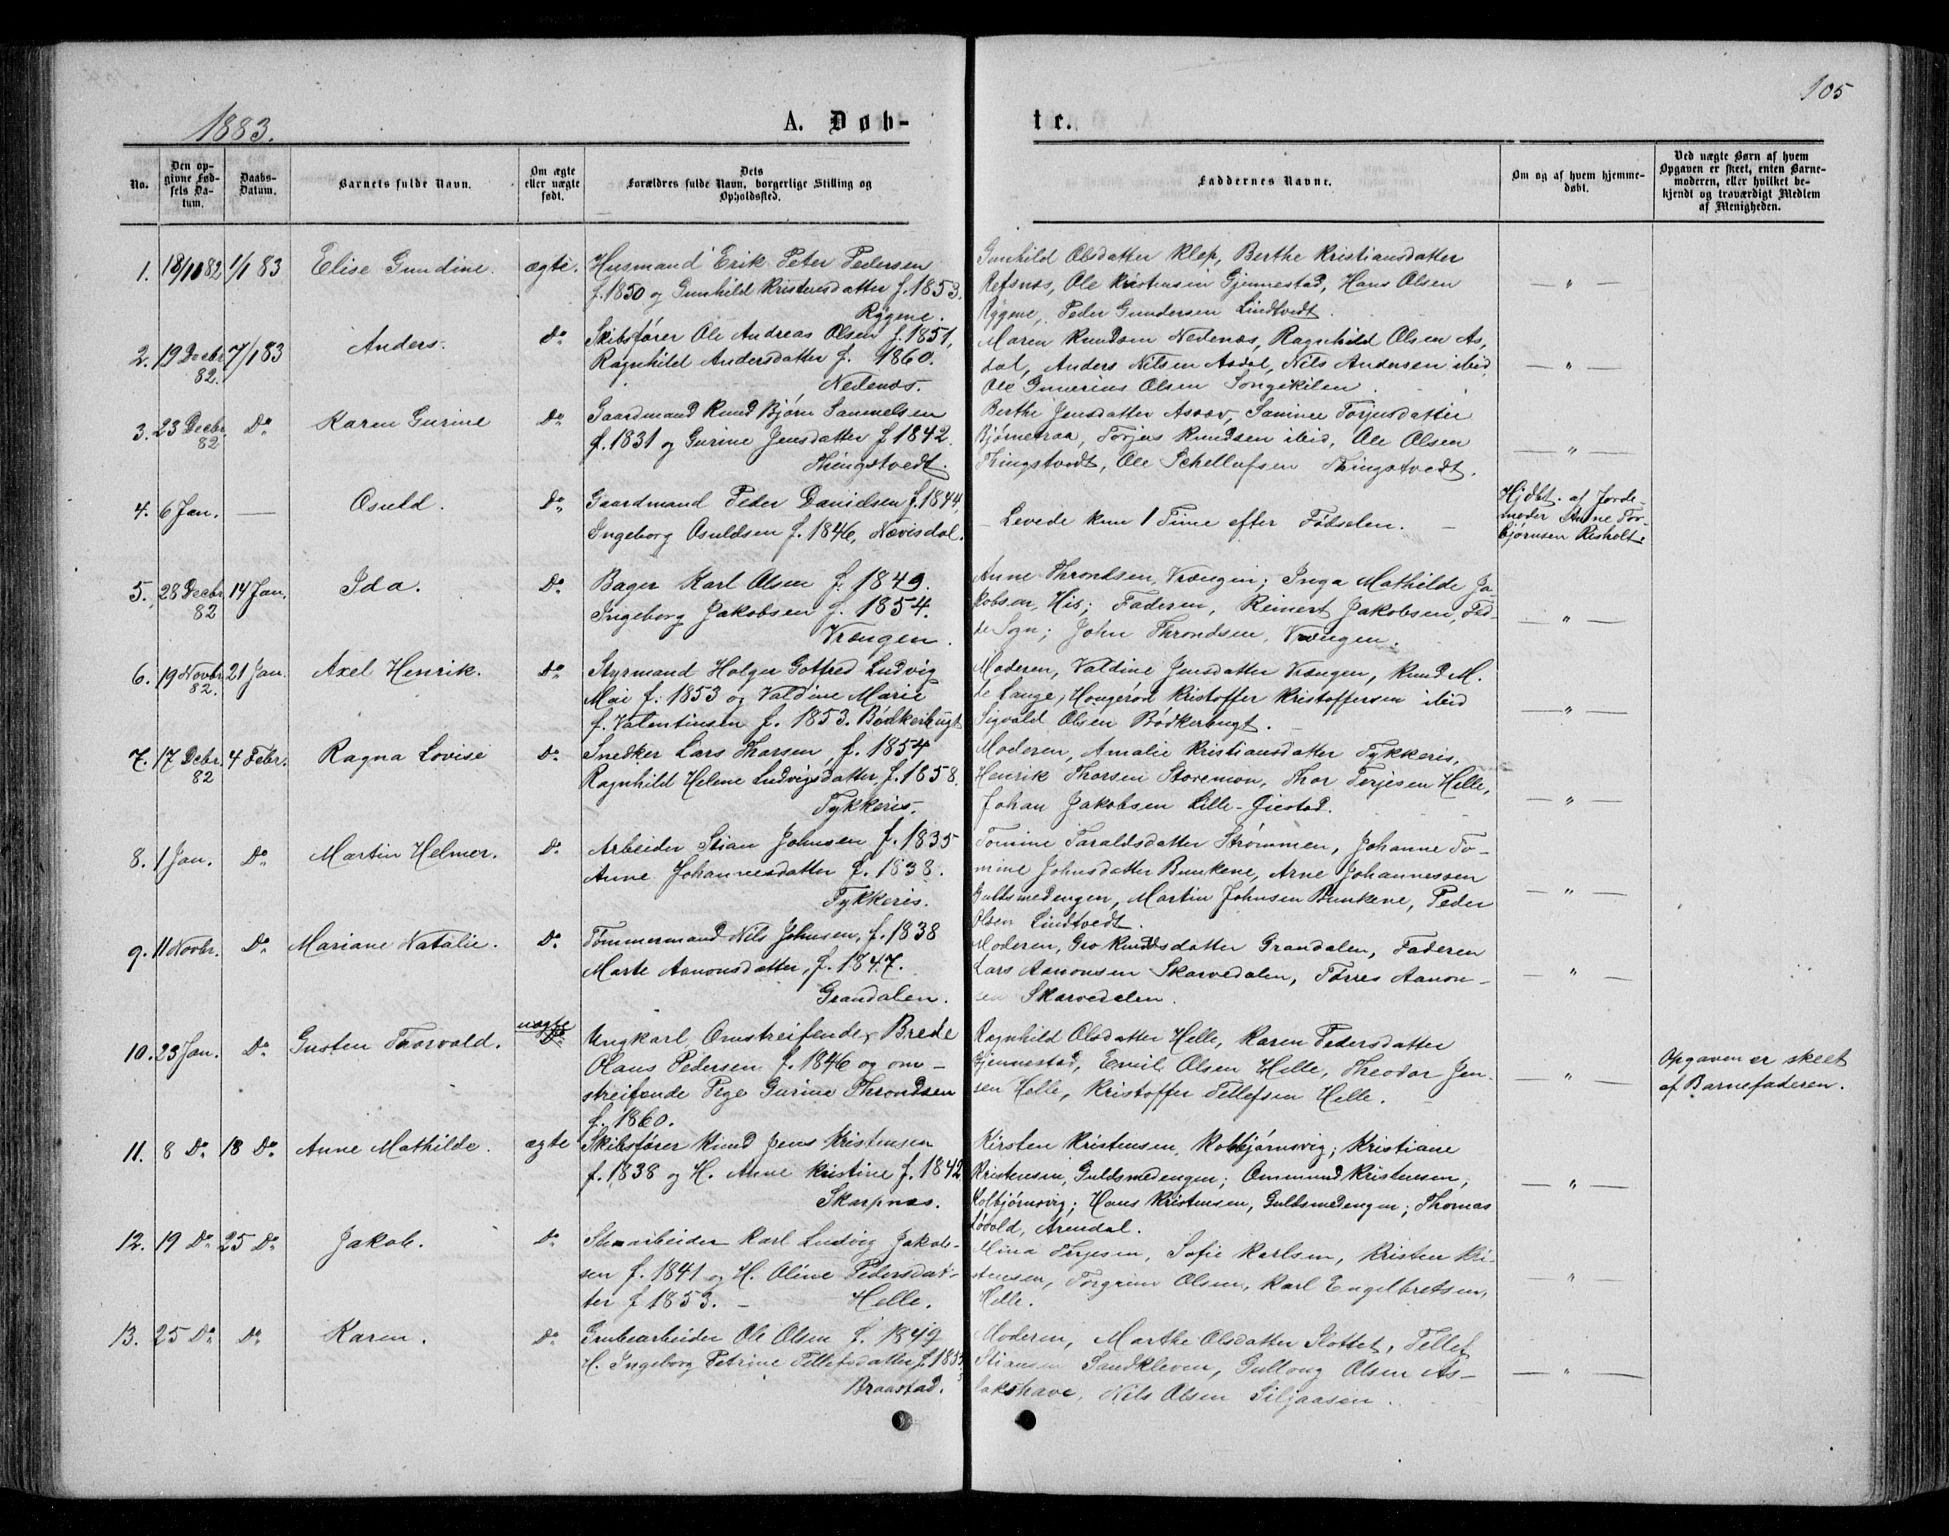 105
1883.
A. Døb-
te.
No.
Den op-
givne Fød-
sels Da-
tum.
Daabs-
Datum.
Barnets fulde Navn.
Om ægte
eller uægte
født.
Dets
Forældres fulde Navn, borgerlige Stilling og
Opholdssted.
Faddernes Navne.
Om og af hvem hjemme-
døbt.
Ved uægte Børn af hvem
Opgaven er skeet, enten Barne-
moderen, eller hvilket be-
kjendt og troværdigt Medlem
af Menigheden.
1. 18/11 82 1/1 83 Elise Gundine. ægte.
Husmand Erik Peter Pedersen
f. 1850 og Gunhild Kristensdatter f. 1853.
Rygene.
Gunhild Olsdatter Klep, Berthe Kristiansdatter
Refsnæs, Ole Kristensen Gjennestad, Hans Olsen
Rygene, Peder Gundersen Lindtvedt.
— " —
2. 19 Decbr 82. 7/1 83 Anders. Do
Skibsfører Ole Andreas Olsen f. 1851,
Ragnhild Andersdatter f. 1860.
Nedenæs.
Maren Knudsen Nedenæs, Ragnhild Olsen As-
dal, Anders Nilsen Asdal, Nils Andersen ibid,
Ole Gunerius Olsen Songekilen.
— " —
3. 23 Decbr. 82 Do Karen Gurine Do
Gaardmand Knud Bjørn Samuelsen
f. 1831 og Gurine Jensdatter f. 1842.
Thingstvedt.
Berthe Jensdatter Torjusdatter
Torjus Knudsen ibid, Ole Olsen
Thingstvedt, Ole Schellufsen Thingstvedt.
— " —
4. 6 Jan. — Osuld. Do
Gaardmand Peder Danielsen f. 1844,
Ingeborg Osuldsen f. 1846, Nævisdal.
— Levede kun 1 Time efter Fødselen. —
Hjdbt. af Jorde-
moder Anne Tor-
bjørnsen Risholt.
5. 28 Decbr 82 14 Jan. Ida. Do
Bager Karl Olsen f. 1849.
Ingeborg Jakobsen f. 1854.
Vrængen.
Anne Throndsen, Vrængen; Inga Mathilde Ja-
kobsen, His; Faderen, Reinert Jakobsen, Fed-
de Sogn; John Throndsen, Vrængen.
— " —
6. 19 Novbr 82. 21 Jan. Axel Henrik. Do
Styrmand Holger Gotfred Ludvig
Moi f. 1853 og Valdine Marie
f. Valentinsen f. 1853. Bødkerbugt
Moderen, Valdine Jensdatter Vrængen, Knud M.
de Lange, Kristoffer Kristoffersen ibid
Sigvald Olsen Bødkerbugt.
— " —
7. 17 Decbr. 82 4 Febr. Ragna Lovise Do
Snedker Lars Thorsen, f. 1854
Ragnhild Helene Ludvigsdatter f. 1858.
Tykkeris.
Moderen, Amalie Kristiansdatter Tykkeris,
Henrik Thorsen Storemoen, Thor Terjesen Helle,
Johan Jakobsen Lille-Giestad.
— " —
8. 1 Jan. Do Martin Helmer. Do
Arbeider Stian Johnsen f. 1835
Anne Johannesdatter f. 1838.
Tykkeris.
Tomine Taraldsdatter Strømmen, Johanne To-
mine Johnsdatter Bunkene, Arne Johannessen
Guldsmedengen, Martin Johnsen Bunkene, Peder
Olsen Lindtvedt.
— " —
9. 11 Novbr. Do Mariane Natalie. Do
Tømmermand Nils Johnsen, f. 1838
Marte Aanonsdatter, f. 1847.
Grandalen.
Moderen, Gro Knudsdatter Grandalen, Faderen
Lars Aanonsen Skarvedalen, Tørres Aanon-
sen Skarvedalen.
— " —
10. 23 Jan. Do Gusten Thorvald. uægte
Ungkarl, Omstreifende, Brede
Olaus Pedersen f. 1846 og om-
streifende Pige Gurine Throndsen
f. 1860.
Ragnhild Olsdatter Helle, Karen Pedersdatter
Gjennestad, Emil Olsen Helle, Theodor Jen-
sen Helle, Kristoffer Tellefsen Helle.
— " —
Opgaven er skeet
af Barnefaderen.
11. 8 Do 18 Do Anne Mathilde. ægte
Skibsfører Knud Jens Kristensen
f. 1838 og H. Anne Kristine f. 1842
Skarpnæs.
Kirsten Kristensen, Kolbjørnsvig; Kristiane
Kristensen, Guldsmedengen; Ommund Kristensen,
Kolbjørnsvig; Hans Kristensen, Guldsmedengen; Thomas
Løvold, Arendal.
— " —
12. 19 Do 25 Do Jakob. Do
Stenarbeider Karl Ludvig Jakob-
sen f. 1841 og H. Oline Pedersdat-
ter f. 1853. — Helle.
Mina Terjesen, Sofie Karlsen, Kristen Kri-
stensen, Torgrim Olsen, Karl Engelbretsen,
Helle.
— " —
13. 25 Do Do Karen. Do
Grubearbeider Ole Olsen f. 1849
H. Ingeborg Petrine Tellefsdatter
Braastad.
Moderen, Marthe Olsdatter Slottet, Tellef
Stiansen Sandkleven, Gullaug Olsen As-
lakshave, Nils Olsen Siljaasen.
— " —